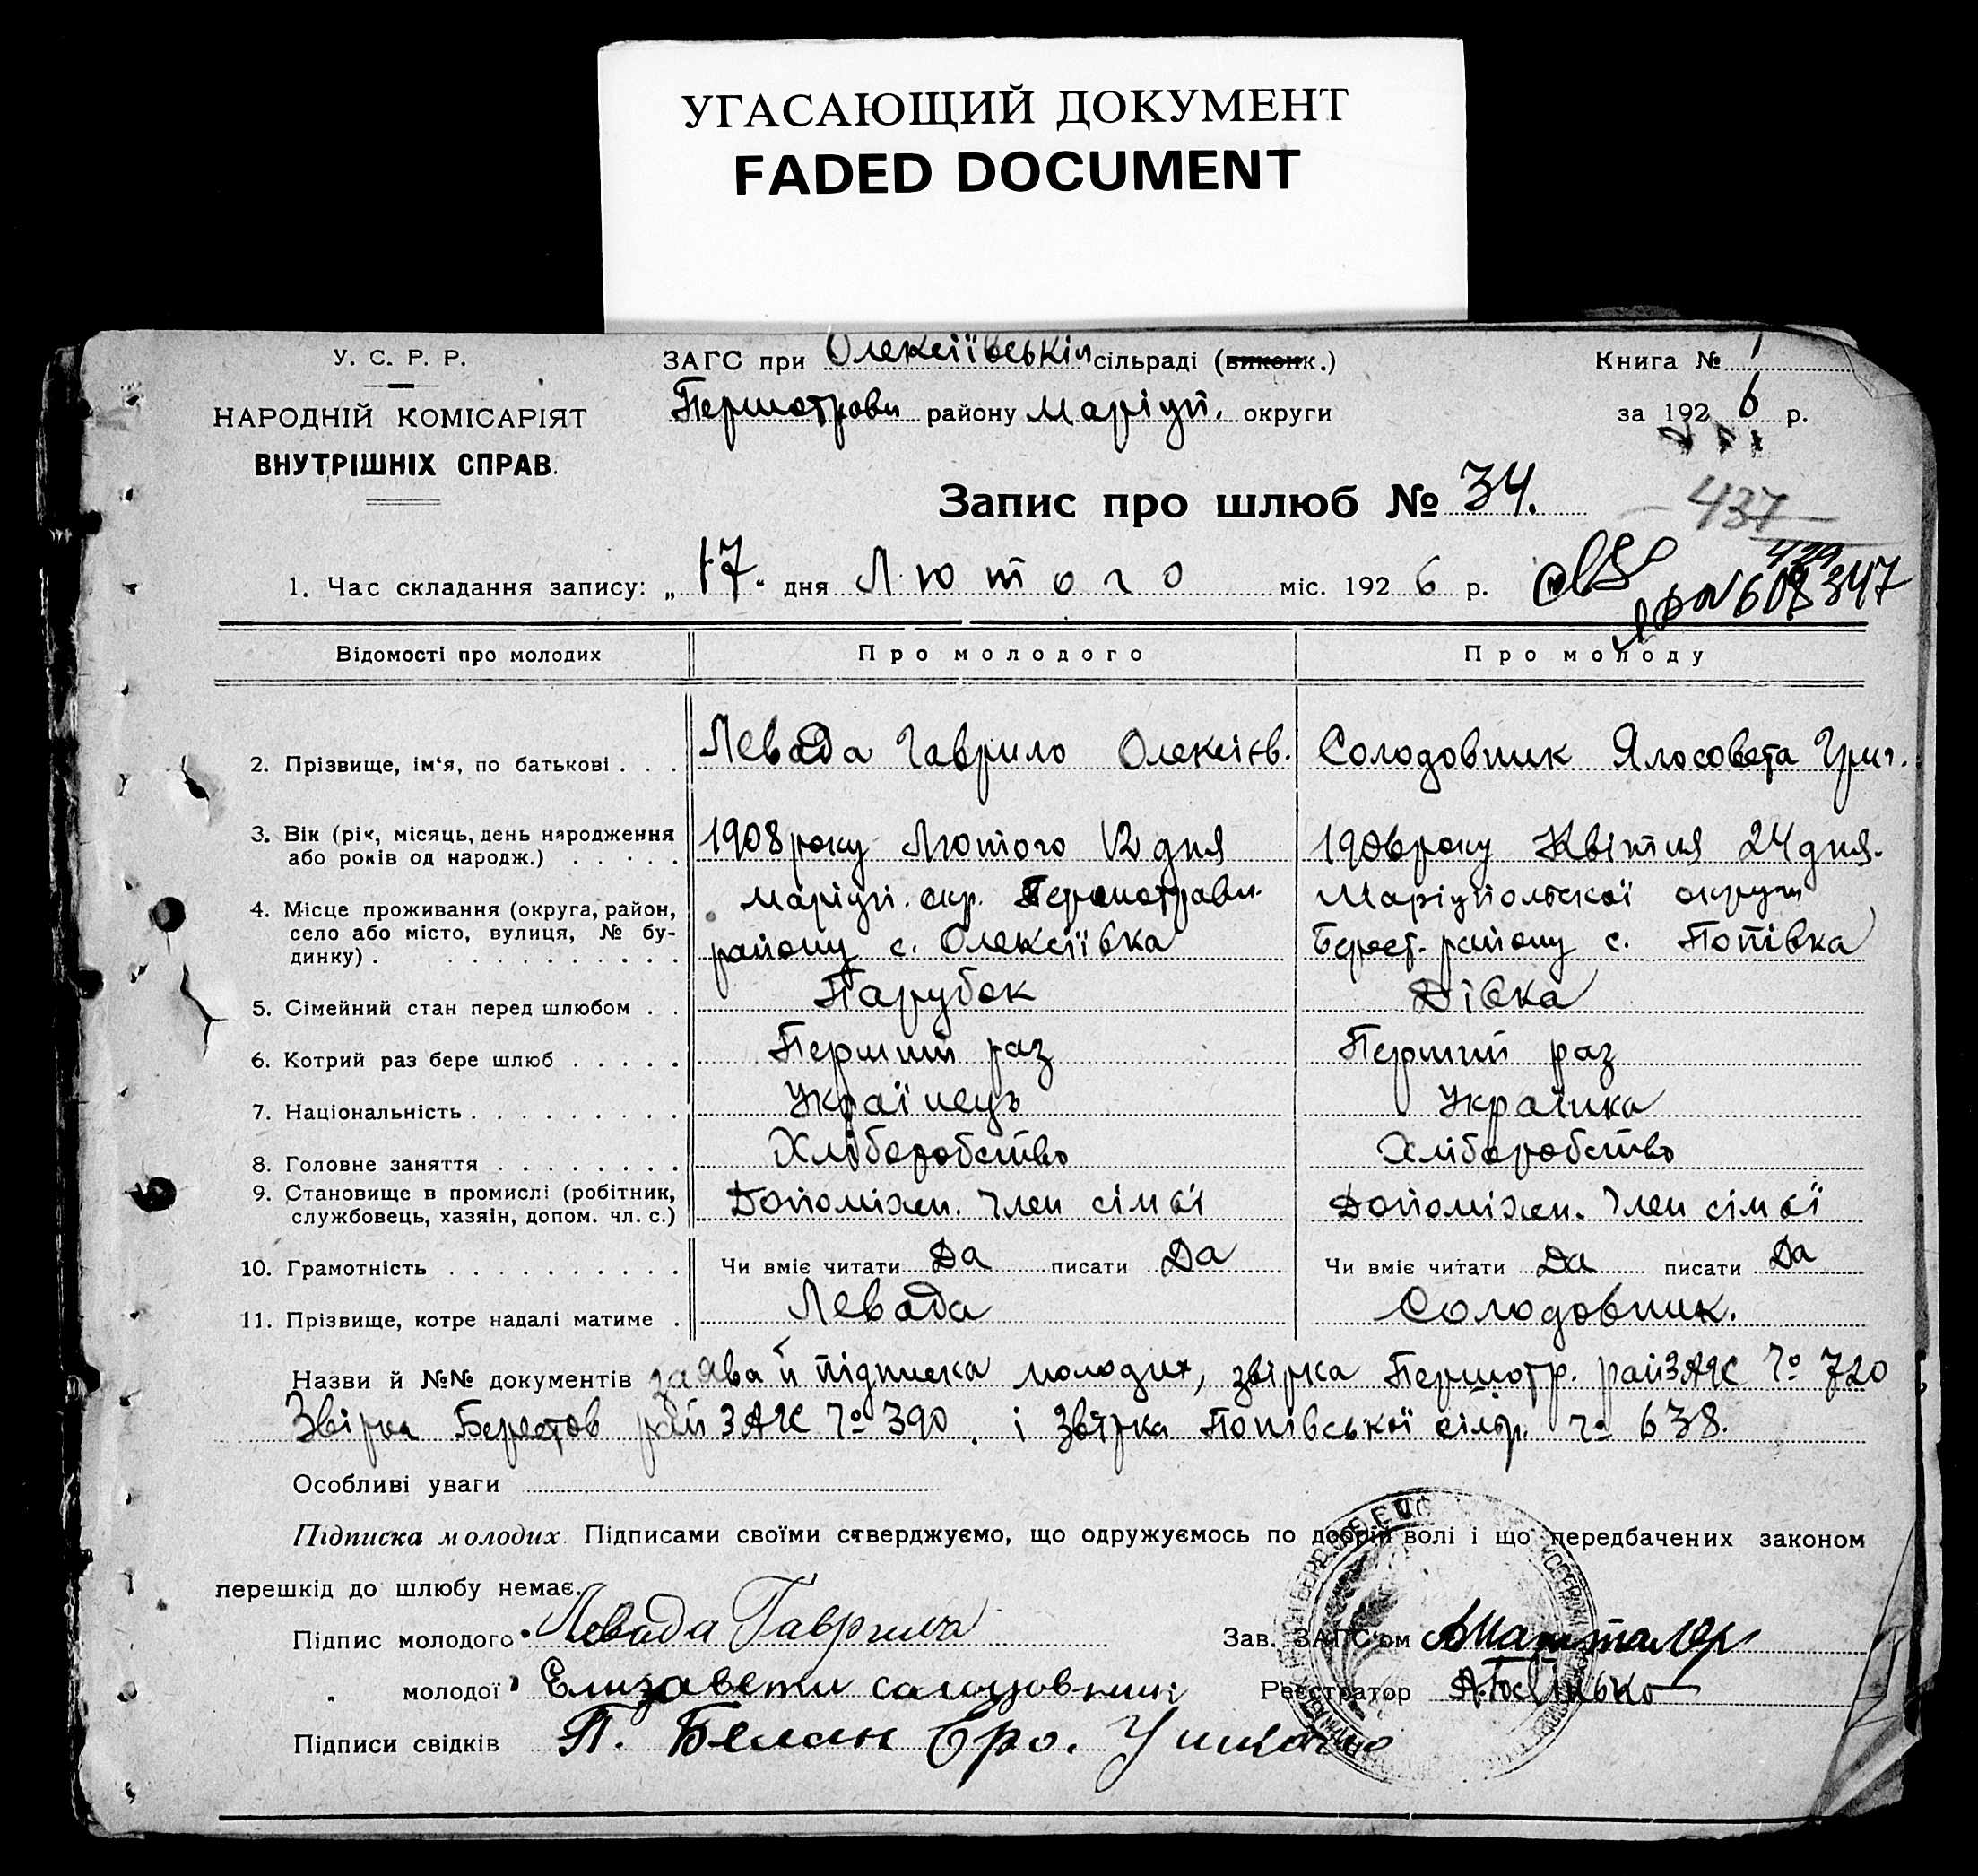 УГАСАЮЩИЙ ДОКУМЕНТ
FADED DOCUMENT
У. С. Р. Р.
НАРОДНІЙ КОМІСАРІЯТ
ВНУТРІШНІХ СПРАВ.
ЗАГС при Олексіївськіл сільраді (виконк.)
Першотравн району Маріуп. округи
Книга № 1
за 1926 р.
Запис про шлюб № 34.
437
429
608 347
1. Час складання запису: „ 17. дня Лютого міс. 1926 р.
Відомості про молодих Про молодого Про молоду
2. Прізвище, ім'я, по батькові . . . Левада Гаврило Олексієв. Солодовник Ялосовета Григ.
3. Вік (рік, місяць, день народження або років од народж.) . . . . . 1908 року Лютого 12 дня 1906 року Квітня 24 дня.
4. Місце проживання (округа, район, село або місто, вулиця, № будинку) . Маріуп. окр. Першотравн. району с. Олексіївка Маріупольскої округи Берест. району с. Попівка
5. Сімейний стан перед шлюбом . . Парубок Дівка
6. Котрий раз бере шлюб . . . . . Перший раз Перший раз
7. Національність . . . . . . . . Українець Українка
8. Головне заняття . . . . . . . . Хліборобство Хліборобство
9. Становище в промислі (робітник, службовець, хазяїн, допом. чл. с.) Допоміжн. член сімʼї Допоміжн. член сімʼї
10. Грамотність . . . . . . . . . . Чи вміє читати Да писати Да Чи вміє читати Да писати Да
11. Прізвище, котре надалі матиме . Левада Солодовник.
Назви й №№ документів заява й підписка молодих, звірка Першотр. райЗАГС № 720
Звірка Берестов рай ЗАГС № 390. і Звірка Попівської сільр. № 638.
Особливі уваги
Підписка молодих. Підписами своїми стверджуємо, що одружуємось по добрій волі і що передбачених законом
перешкід до шлюбу немає.
Підпис молодого Левада Гаврила
Зав. ЗАГС'ом
„ молодої Елизавета
Реєстратор
Підписи свідків П. Белан